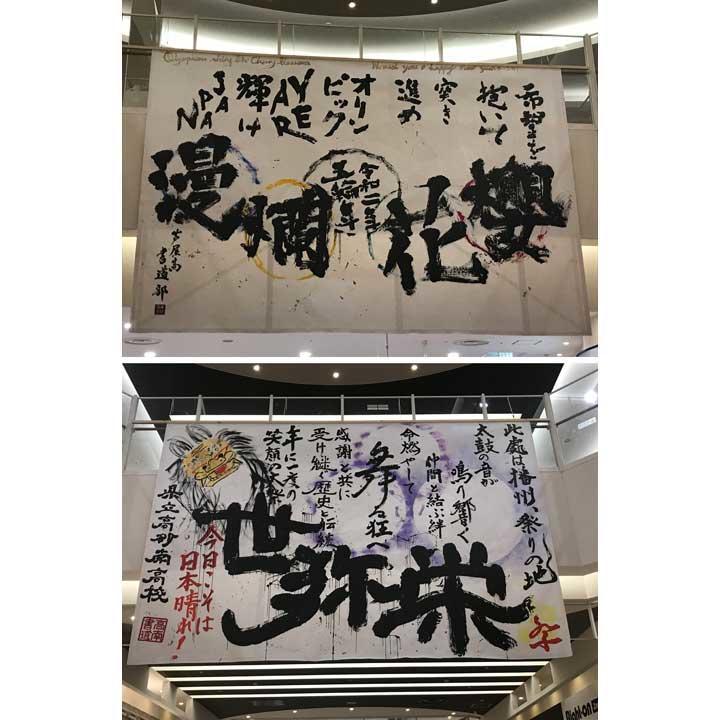 希望を
抱いて
突き
進め
オリン
ピック
YEAR
輝け
JAPAN
櫻花爛漫
令和二年
五輪年
芦屋高
書道部
此處は播州、祭りの地
太鼓の音が
鳴り響く
仲間と結ぶ絆
命燃やして
狂へ
感謝と共に
受け継ぐ歴史と伝統
年に一度の
笑顔の大祭
世弥栄
祭
今日こそは
日本晴れ!
県立高砂南高校
Right-on